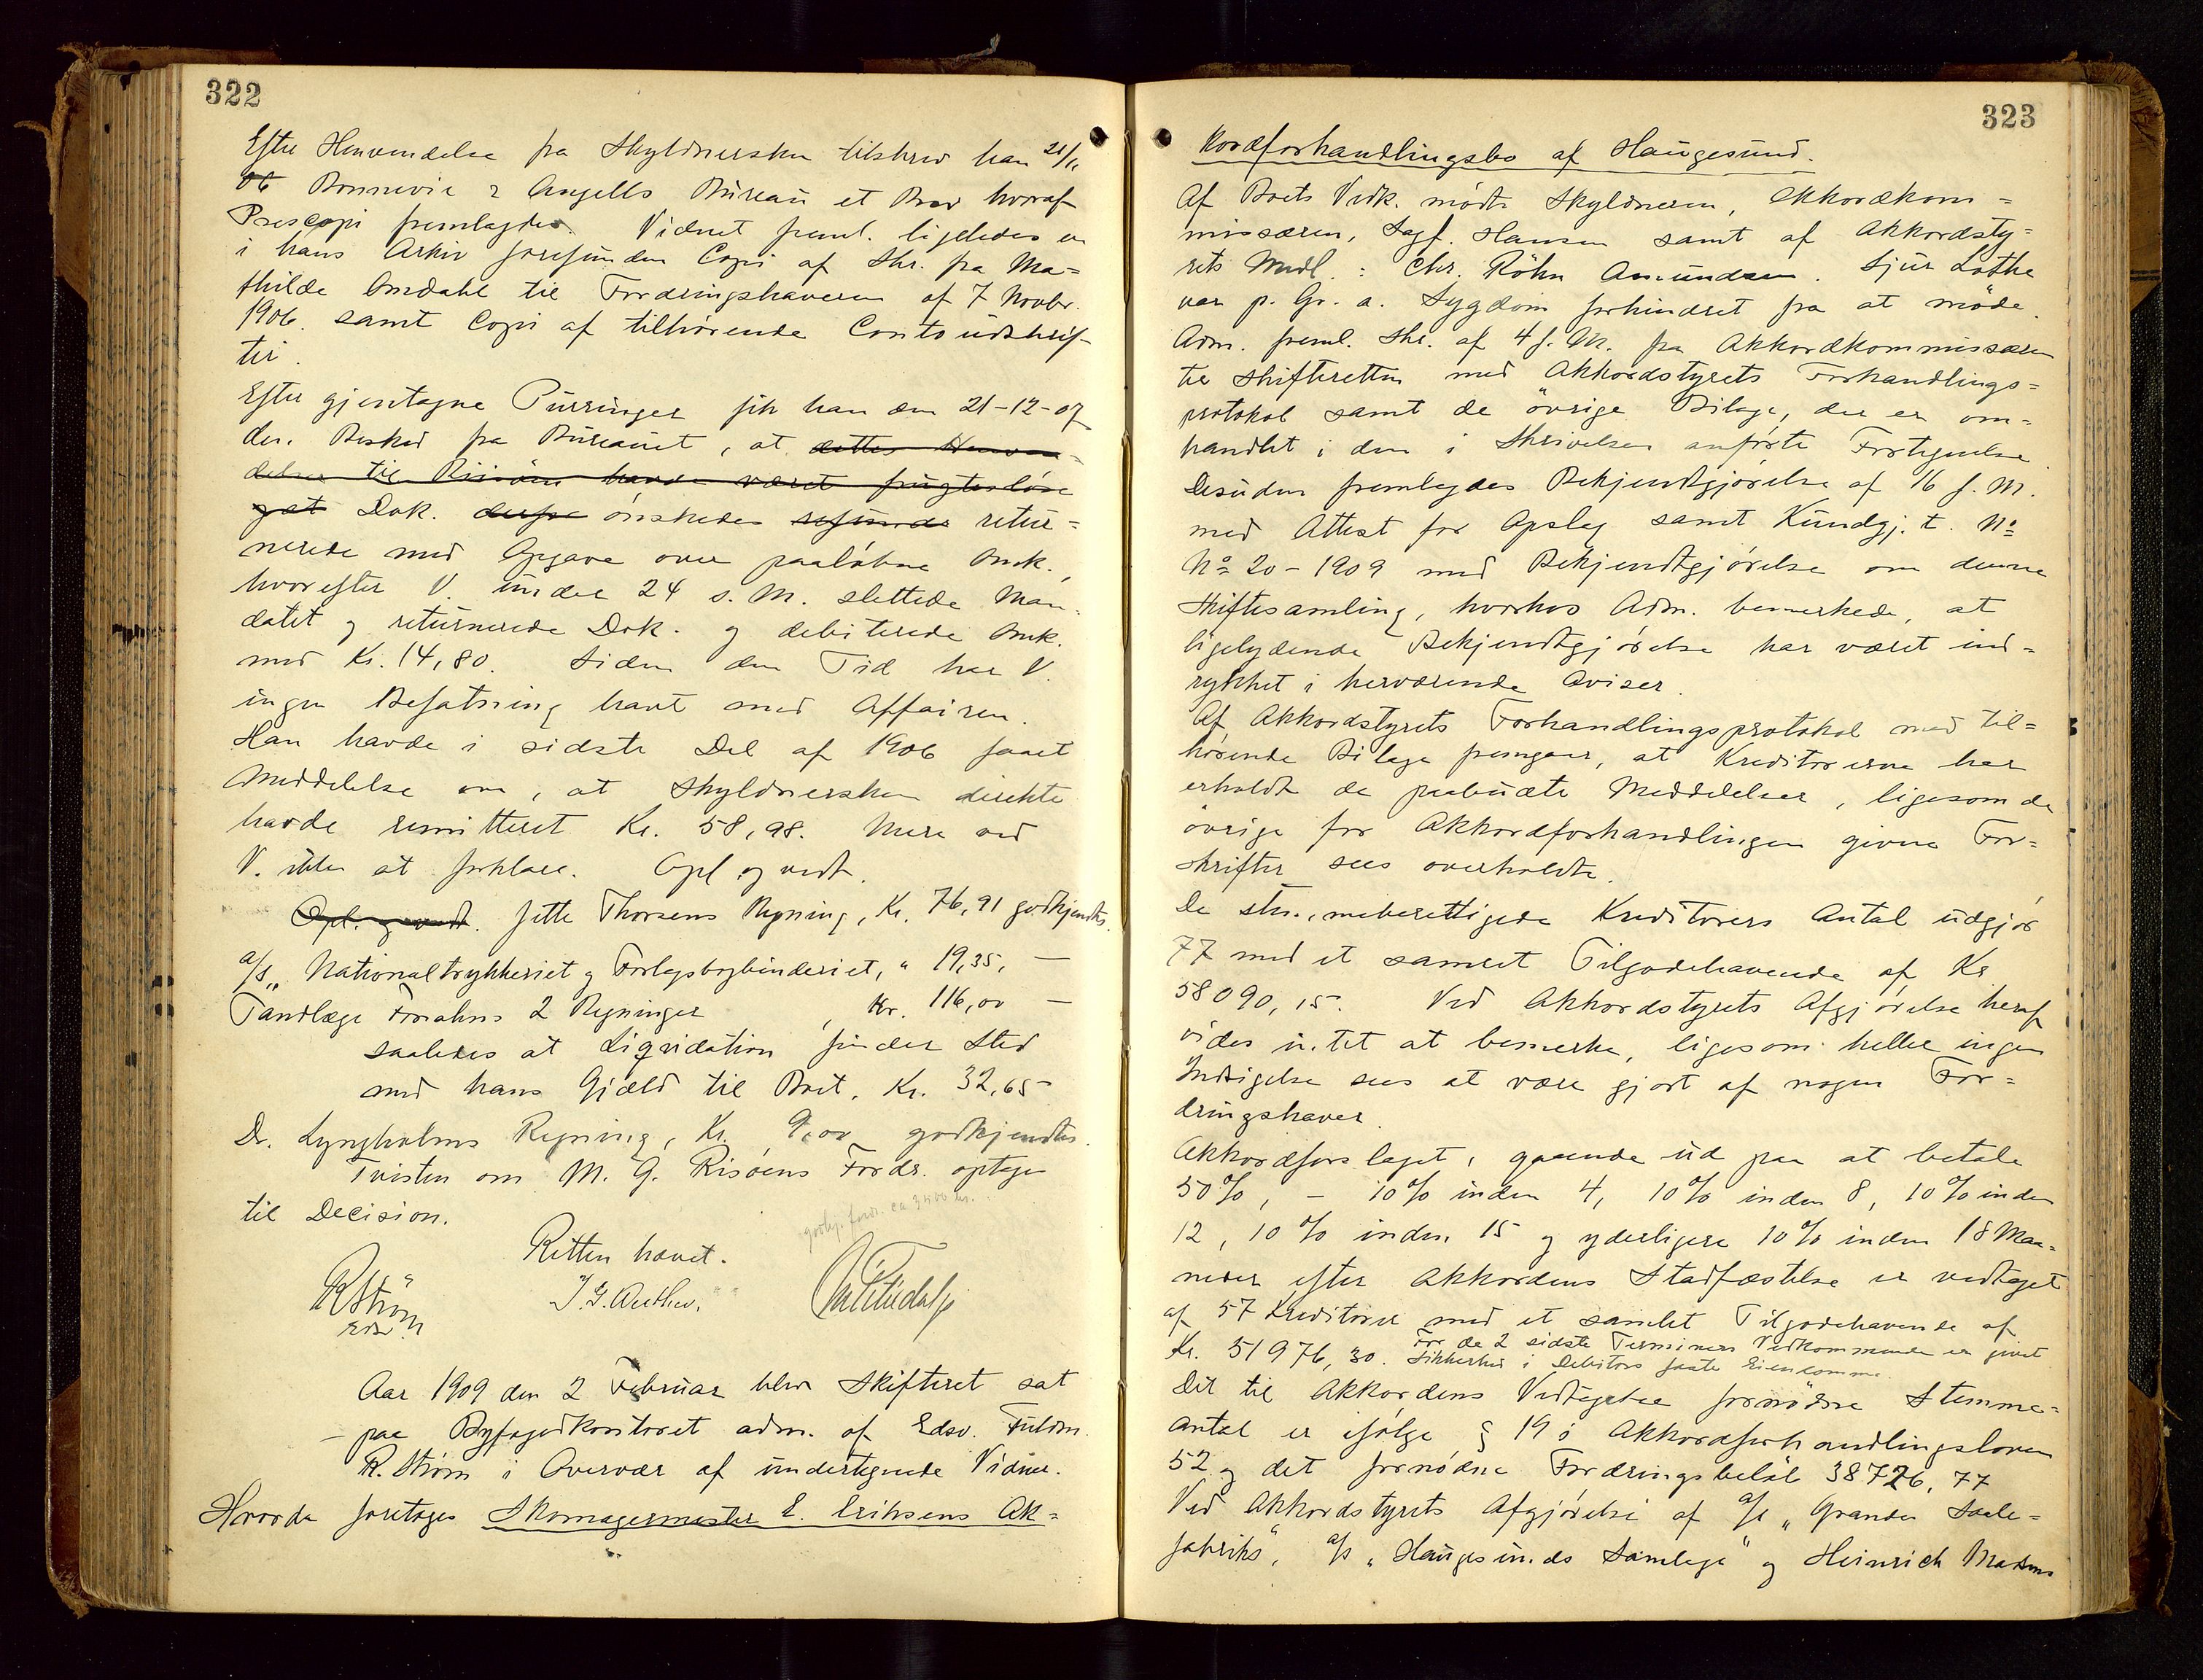 322
Efter Henvendelse fra Skyldnersken tilskrev han 21/11
06 Bonnevie & Angells Büreaü et Brev hvoraf
Prescopi fremlagdes. Vidnet freml. ligeledes en
i hans Arkiv forefünden Copi af Skr. fra Ma=
thilde Omdahl til Fordringshaveren af 7 Novbr.
1906. samt Copi af tilhørende Contoüdskrif-
ter.
Efter gjentagne Pürringer fik han den 21-12-07
den Besked fra Büreaüet, at dettes Henven=
delser til Risöen havde været frügtesløse
gat Dok. derfor ønskedes retür=
nerede med Opgave over paaløbne Omk.,
hvorefter V. ünder 24 s. M. slettede Man=
datet og retürnerede Dok. og debiterede Omk.
med Kr. 14,80. Siden den Tid har V.
ingen Befatning havt med Affairen.
Han havde i sidste Del af 1906 faaet
Meddelelse om, at Skyldnersken direkte
havde remitteret Kr. 58,98. Mere ved
V. ikke at forklare. Opl. og vedt.
Opl. og vedt. Jette Thorsens Regning, Kr. 76,91 godkjendtes.
a/s „Nationaltrykkeriet og Forlagsbogbinderiet, " 19,35, —
Tandlæge Forahns 2 Regninger , Kr. 116,00 —
saaledes at Liqvidation finder Sted
med hans Gjæld til Boet, Kr. 32,65
Dr. Lyngholms Regning, Kr. 9,00 godkjendtes.
Tvisten om M. G. Risöens Fordr. optages
til Decision.
Retten hævet.
R Ström
Edsv.
Aar 1909 den 2 Februar blev Skifteret sat
- paa Byfogedkontoret adm. af Edsv. Fuldm.
R. Ström i Overvær af undertegnede Vidner.
Hvorda foretoges Skomagermester E. Eriksens Ak=
323
kordforhandlingsbo af Haügesünd.
Af Boets Vedk. mødte Skyldneren, Akkordkom=
missæren, Sagf. Hansen samt af Akkordsty=
rets Medl.: Chr. Röhn Amündsen. Sjür Lothe
var p. Gr. a. Sygdom forhindret fra at møde.
Adm. freml. Skr. af 4 f. M. fra Akkordkommissæren
til Skifteretten med Akkordstyrets Forhandlings=
protokol samt de övrige Bilage, der er om=
handlet i den i Skrivelsen anförte Fortegnelse.
Desüden fremlagdes Bekjendtgjørelse af 16 f. M.
med Attest for Opslag samt Kündgj. t. No
No 20 - 1909 med Bekjendtgjørelse om denne
Skiftesamling, hvorhos Adm. bemerkede, at
ligelydende Bekjendtgjørelse har været ind=
rykket i herværende Aviser.
Af Akkordstyrets Forhandlingsprotokol med til=
hørende Bilage fremgaar, at Kreditorerne har
erholdt de paabüdte Meddelelser, ligesom de
övrige for Akkordforhandlingen givne For=
skrifter sees overholdte.
De stemmeberettigede Kreditorers Antal üdgjør
77 med et samlet Tilgodehavende af Kr.
58090,15. Ved Akkordstyrets Afgjørelse heraf
vides intet at bemerke, ligesom heller ingen
Indsigelse sees at være gjort af nogen For=
dringshaver.
Akkordforslaget, gaaende üd paa at betale
50%, - 10% inden 4, 10% inden 8, 10% inden
12, 10% inden 15 og yderligere 10% inden 18 Maa=
neder efter Akkordens Stadfæstelse er vedtaget
af 57 Kreditorer med et samlet Tilgodehavende af
Kr. 51976,30. For de 2 sidste Terminers Vedkommende er givet
Sikkerhed i Debitors faste Eiendomme.
Det til Akkordens Vedtagelse fornødne Stemme=
antal er ifølge § 19 i Akkordforhandlingsloven
52 og det fornødne Fordringsbeløb 38726,77
Ved Akkordstyrets Afgjørelse af a/s „Grandes Saale=
fabriks", a/s „Haugesunds Samlage" og Heinrich Madsens